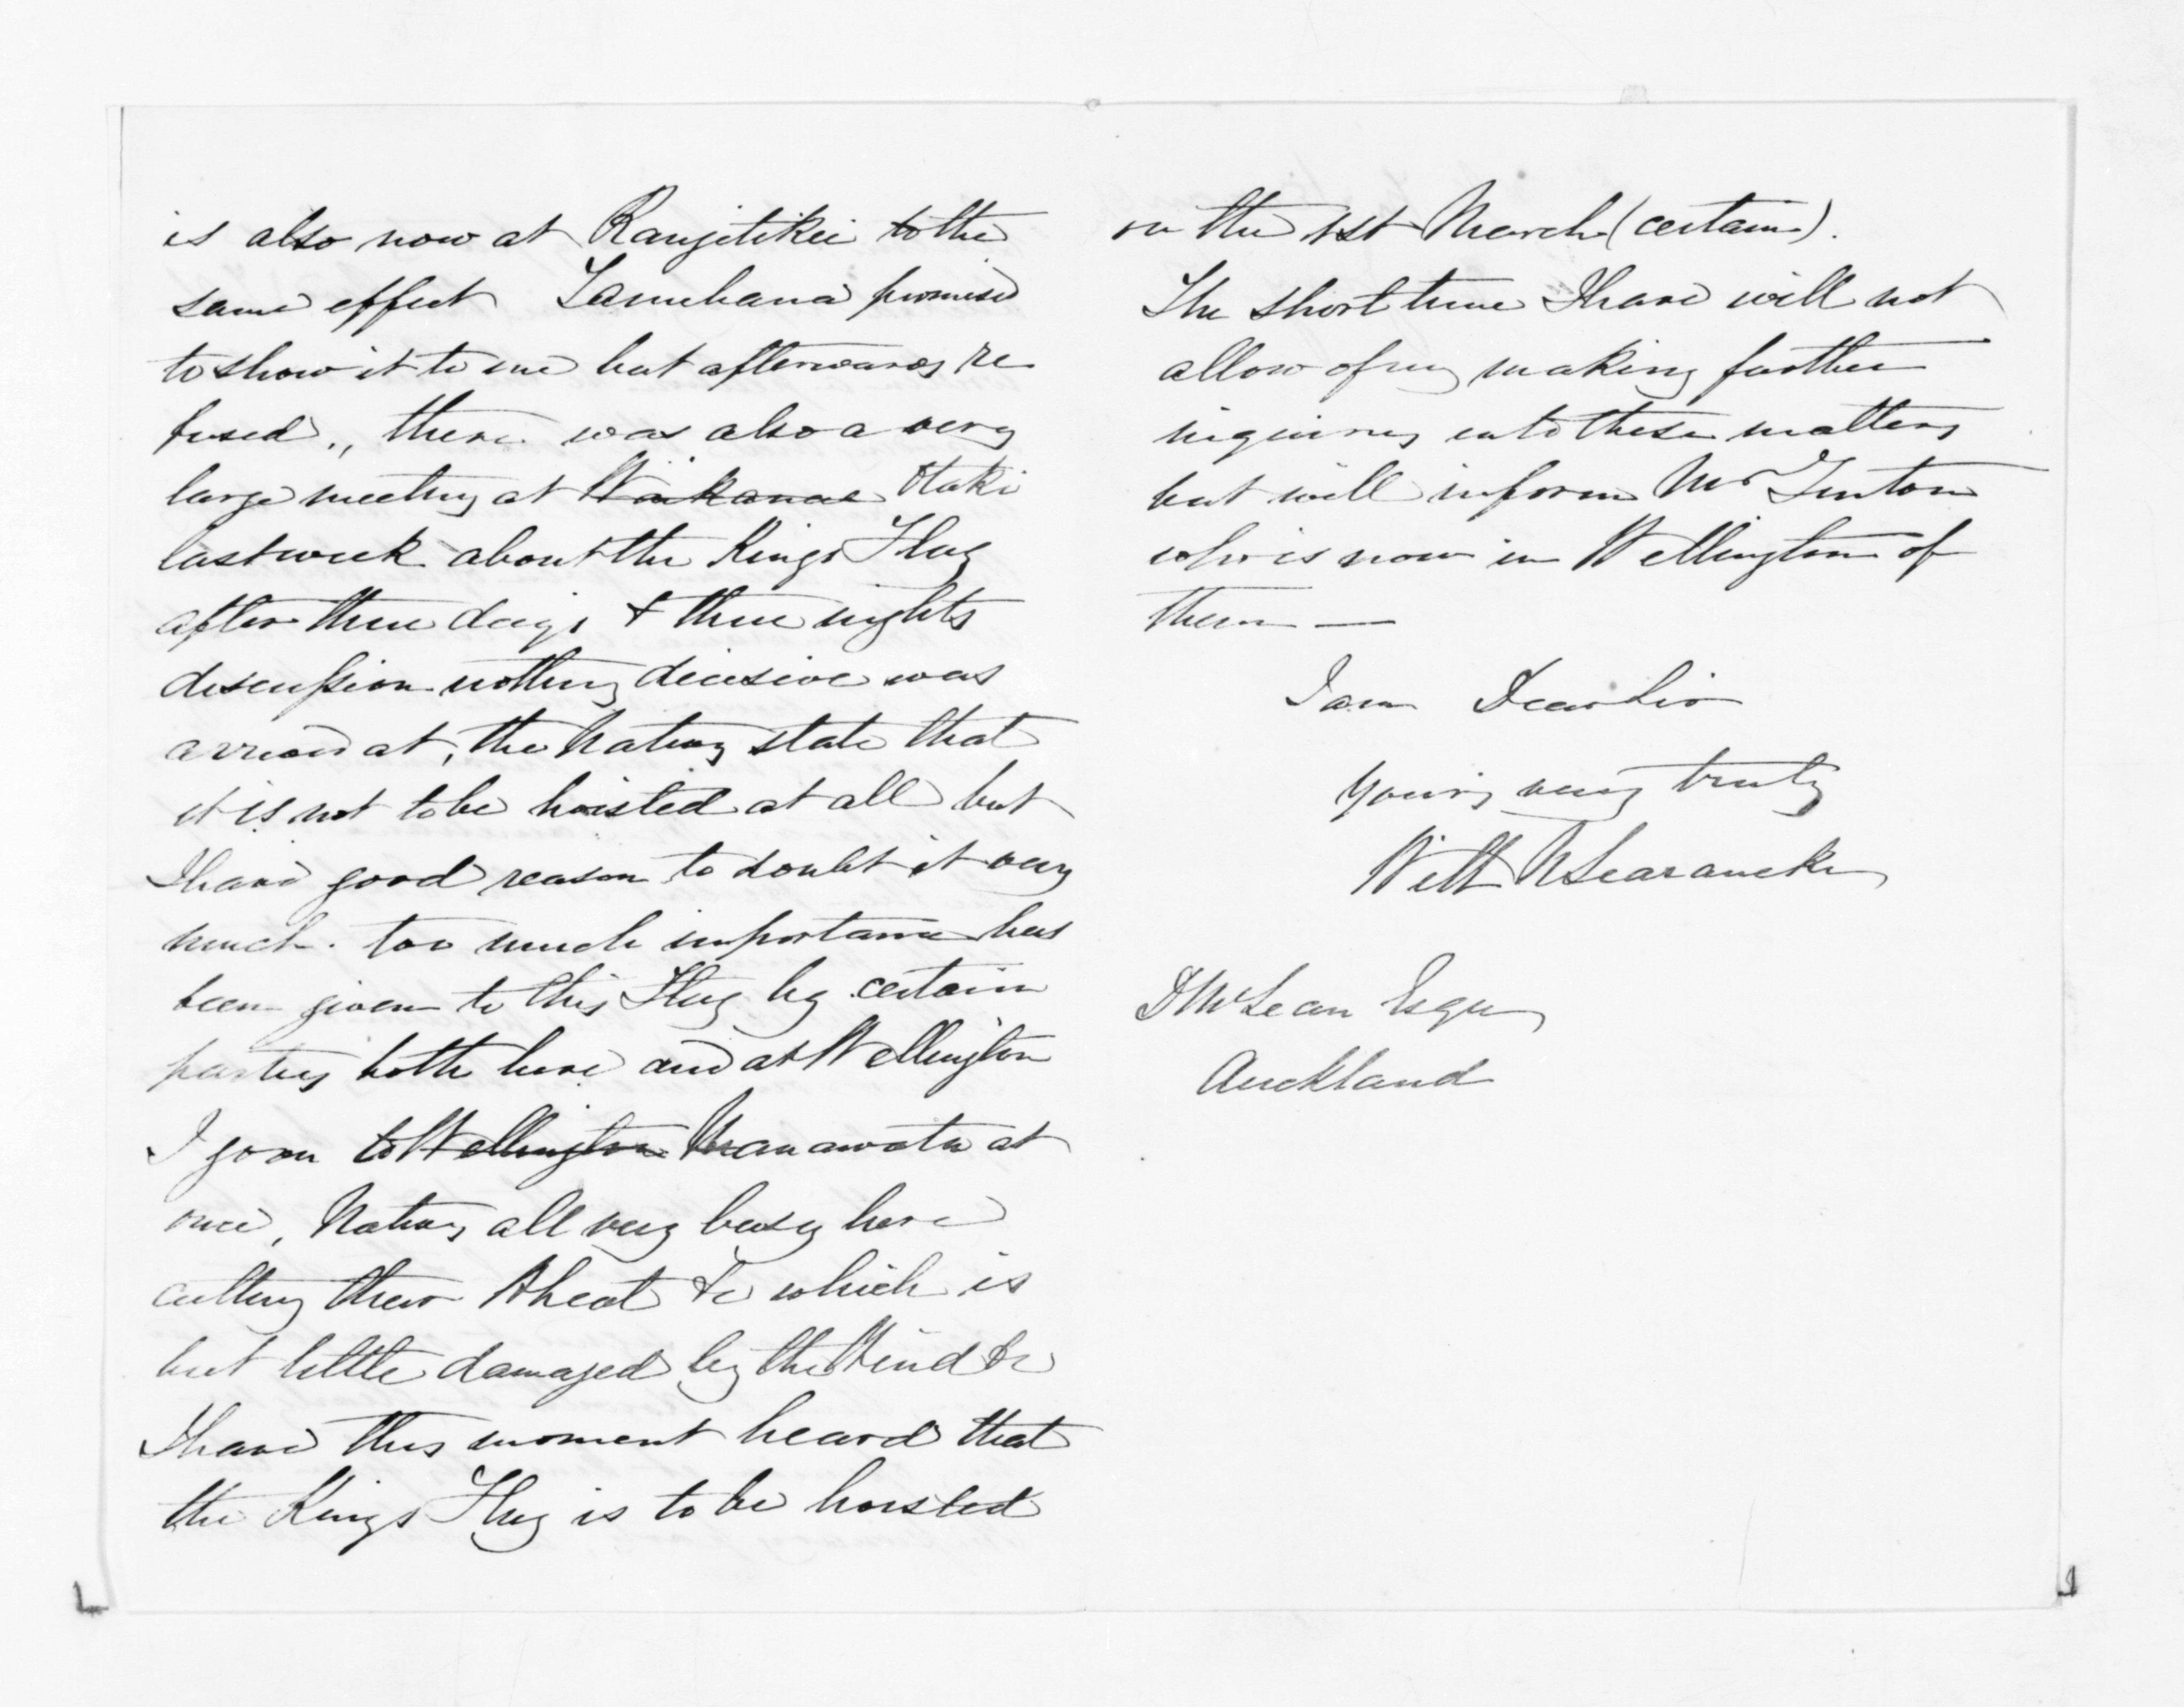 is also now at Rangitikei to the
same effect Tamehana promised
to show it to me but afterwards re
fused., there was also a very
large meeting at Waikanae Otaki
last week about the Kings Flag
after three days & three nights
discussion nothing decisive was
arrived at, the Natives state that
it is not to be hoisted at all but
I have good reason to doubt it very
much. too much importance has
been given to this Flag by certain
parties both here and at Wellington
I go on to Wellington Manawatu at
once, Natives all very busy here
cutting their Wheat &c which is
but little damaged by the Wind &c
I have this moment heard that
the Kings Flag is to be hoisted
on the 1st March (certain).
The short time I have will not
allow of my making further
inquiries into these matters
but will inform Mr
who is now in Wellington of
them —
I am Dear Sir
Yours very truly
Willm N Searancke
D McLean Esqre
Auckland